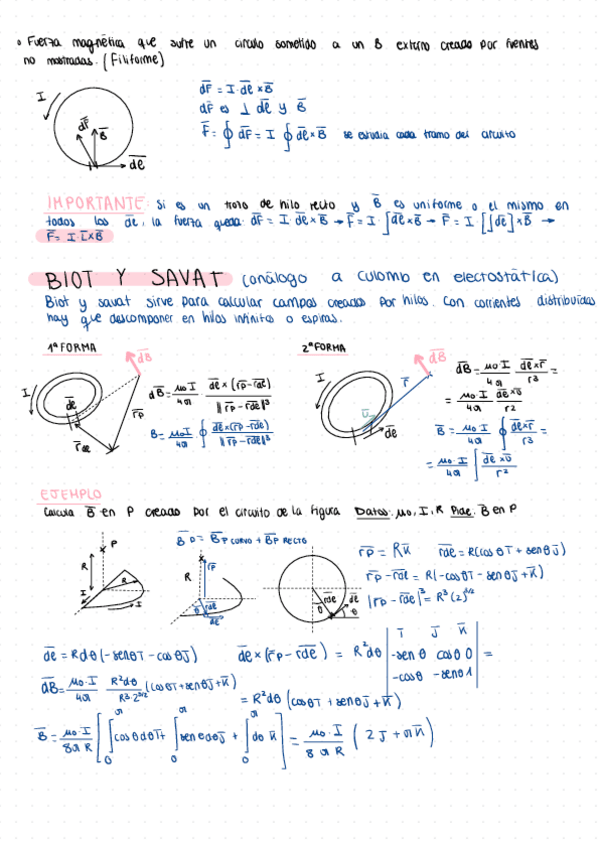 • Fuerza magnética que sufre un circulo sometido a un B externo creado por fuentes
no mostradas. (Filiforme)
I
dF
B
de
dF = I · de × B
dF es ⊥ de y B
F = ∮ dF = I ∮ de × B se estudia cada tramo del circuito
IMPORTANTE: Si es un trozo de hilo recto y B es uniforme o el mismo en
todos los de, la fuerza queda: dF = I · de × B → F = I · ∫de × B → F = I · [∫de] × B →
F = I · L × B
BIOT Y SAVAT (análogo a culomb en electostática)
Biot y savat sirve para calcular campos creados por hilos. Con corrientes distribuidas
hay que descomponer en hilos infinitos o espiras.
1ª FORMA
dB
I
de
rde
rp
dB = μo I / 4π · de × (rp - rde) / ||rp - rde||³
B = μo I / 4π ∮ de × (rp - rde) / ||rp - rde||³
2ª FORMA
dB
I
r
u
de
dB = μo I / 4π · de × r / r³ =
= μo · I / 4π · de × u / r²
B = μo · I / 4π ∮ de × r / r³ =
= μo · I / 4π ∫ de × u / r²
EJEMPLO
Calcula B en P creado por el circuito de la figura Datos: μo, I, R Pide: B en P
P
R
R
I
I
Bp = Bp curvo + Bp recto
R
rp
θ
rde
de
rde
de
θ
θ
rp = R k rde = R (cosθ i + senθ j)
rp - rde = R (-cosθ i - senθ j + k)
|rp - rde|³ = R³ (2)^3/2
de = R dθ (-senθ i - cosθ j) de × (rp - rde) = R² dθ | i j k | -senθ cosθ 0 | -cosθ -senθ 1 | =
dB = μo · I / 4π · R² dθ / R³ · 2^3/2 (cosθ i + senθ j + k) = R² dθ (cosθ i + senθ j + k)
B = μo · I / 8π R [ ∫₀^π cosθ dθ i + ∫₀^π senθ dθ j + ∫₀^π dθ k ] = μo · I / 8π R ( 2 j + π k )